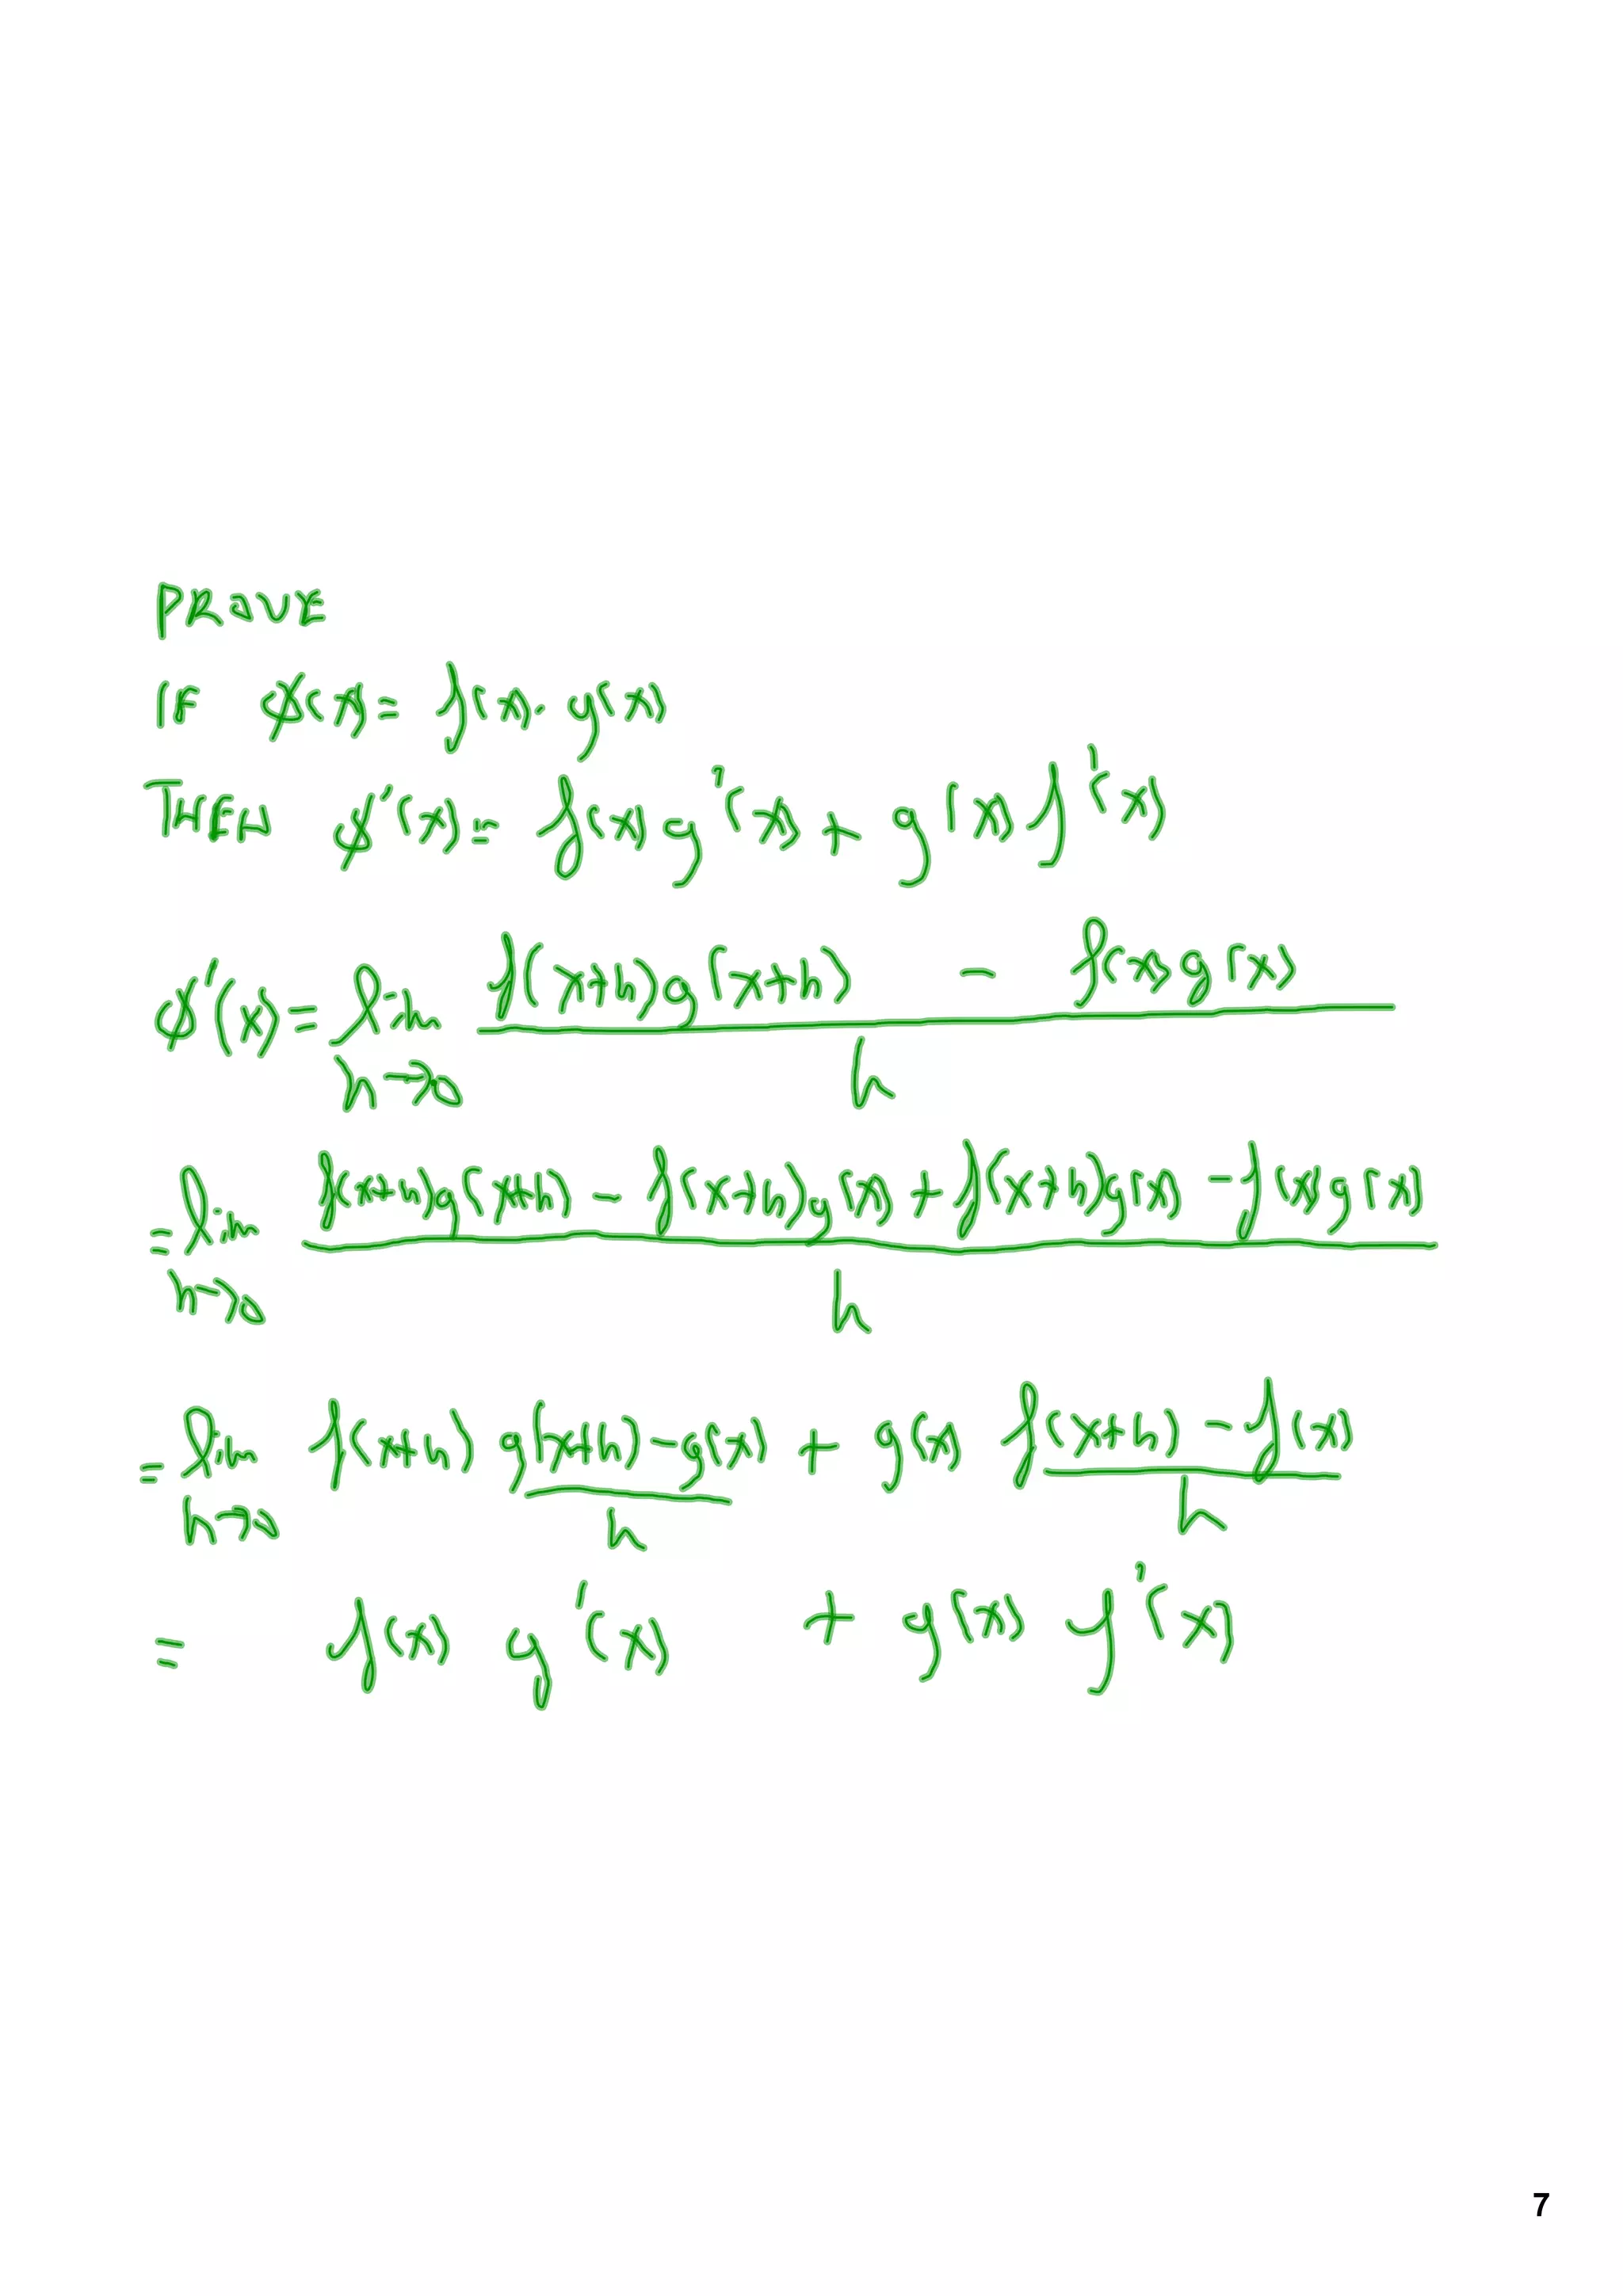 PROVE
IF φ(x) = f(x)·g(x)
THEN φ'(x) = f(x)g'(x) + g(x)f'(x)
φ'(x) = lim f(x+h)g(x+h) - f(x)g(x)
h→0 h
= lim f(x+h)g(x+h) - f(x+h)g(x) + f(x+h)g(x) - f(x)g(x)
h→0 h
= lim f(x+h) g(x+h) - g(x) + g(x) f(x+h) - f(x)
h→0 h h
= f(x) g'(x) + g(x) f'(x)
7